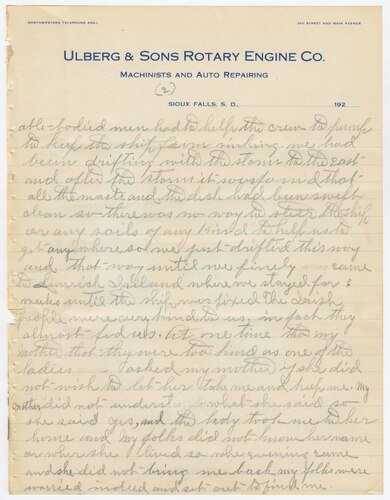 NORTHWESTERN TELEPHONE
3RD STREET AND MAIN AVENUE
ULBERG & SONS ROTARY ENGINE CO.
MACHINISTS AND AUTO REPAIRING
(2)
SIOUX FALLS, S. D., 192
able-bodied men had to help the crew to pump
to keep the ship from sinking we had
been drifting with the storm to the East
and after the storm it was found that
all the masts and the deck had been swift
clean so there was no way to steer the ship
or any sails of any kind to help us to
get anywhere so we just drifted this way
and that way until we finely came
to Limrick Ireland where we stayed for 6
weeks until the ship was fixed the Irish
people were very kind to us, in fact they
almost fed us. at one time tho my
Mother that they were too kind as one of the
ladies asked my mother if she did
not wish to let her take me and keep me. My
mother did not underst what she said so
she said yes, and the lady took me to her
home and my folks did not know her name
or wher she lived so when evening came
and she did not bring me back my folks were
worried indeed and set out to find me